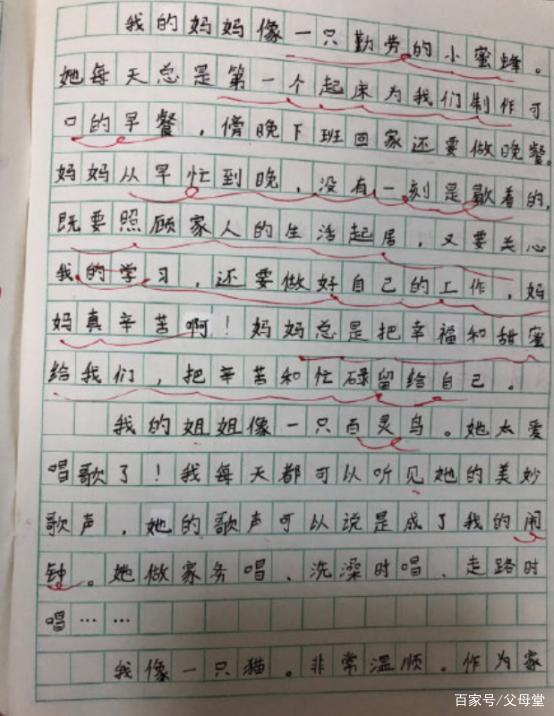 我的妈妈像一只勤劳的小蜜蜂。
她每天总是第一个起床为我们制作可
口的早餐，傍晚下班回家还要做晚餐。
妈妈从早忙到晚，没有一刻是歇着的，
既要照顾家人的生活起居，又要关心
我的学习，还要做好自己的工作，妈
妈真辛苦啊！妈妈总是把幸福和甜蜜
给我们，把辛苦和忙碌留给自己。
我的姐姐像一只百灵鸟。她太爱
唱歌了！我每天都可以听见她的美妙
歌声，她的歌声可以说是成了我的闹
钟。她做家务唱、洗澡时唱、走路时
唱……
我像一只猫。非常温顺。作为家
百家号/父母堂